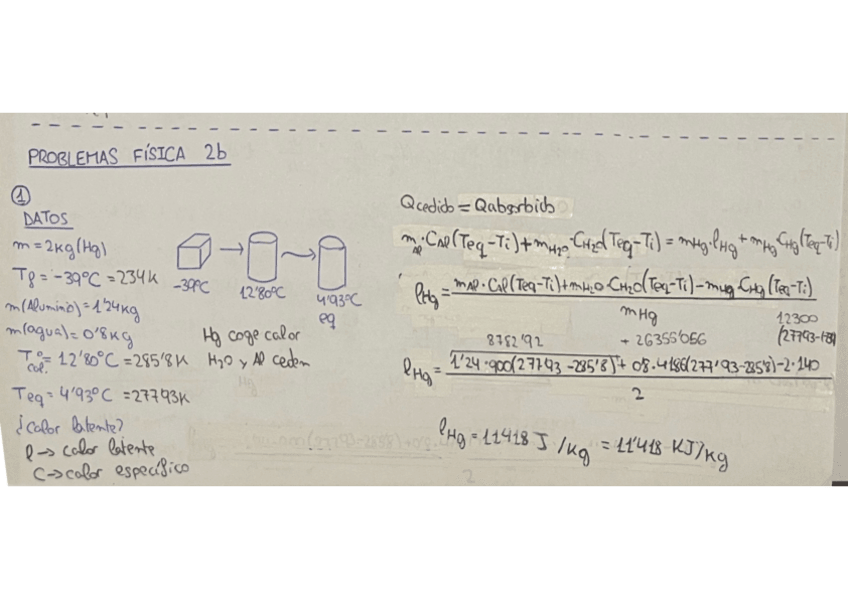 PROBLEMAS FÍSICA 2b
①
DATOS
m = 2kg (Hg)
Tf = -39ºC = 234K
m(Aluminio) = 1'24kg
m(agua) = 0'8kg
Tº cal = 12'80ºC = 285'8K
Teq = 4'93ºC = 277'93K
¿calor latente?
l → calor latente
C → calor específico
-39ºC
12'80ºC
4'93ºC
eq
Hg coge calor
H2O y Al ceden
Qcedido = Qabsorbido
mAl · CAl (Teq - Ti) + mH2O · CH2O (Teq - Ti) = mHg · lHg + mHg CHg (Teq - Ti)
lHg = mAl · CAl (Teq - Ti) + mH2O · CH2O (Teq - Ti) - mHg · CHg (Teq - Ti)
mHg
12300
8782'92 + 26355'056
lHg = 1'24 · 900 (277'93 - 285'8) + 0'8 · 4186 (277'93 - 285'8) - 2 · 140
2
lHg = 11418 J/kg = 11'418 KJ/kg